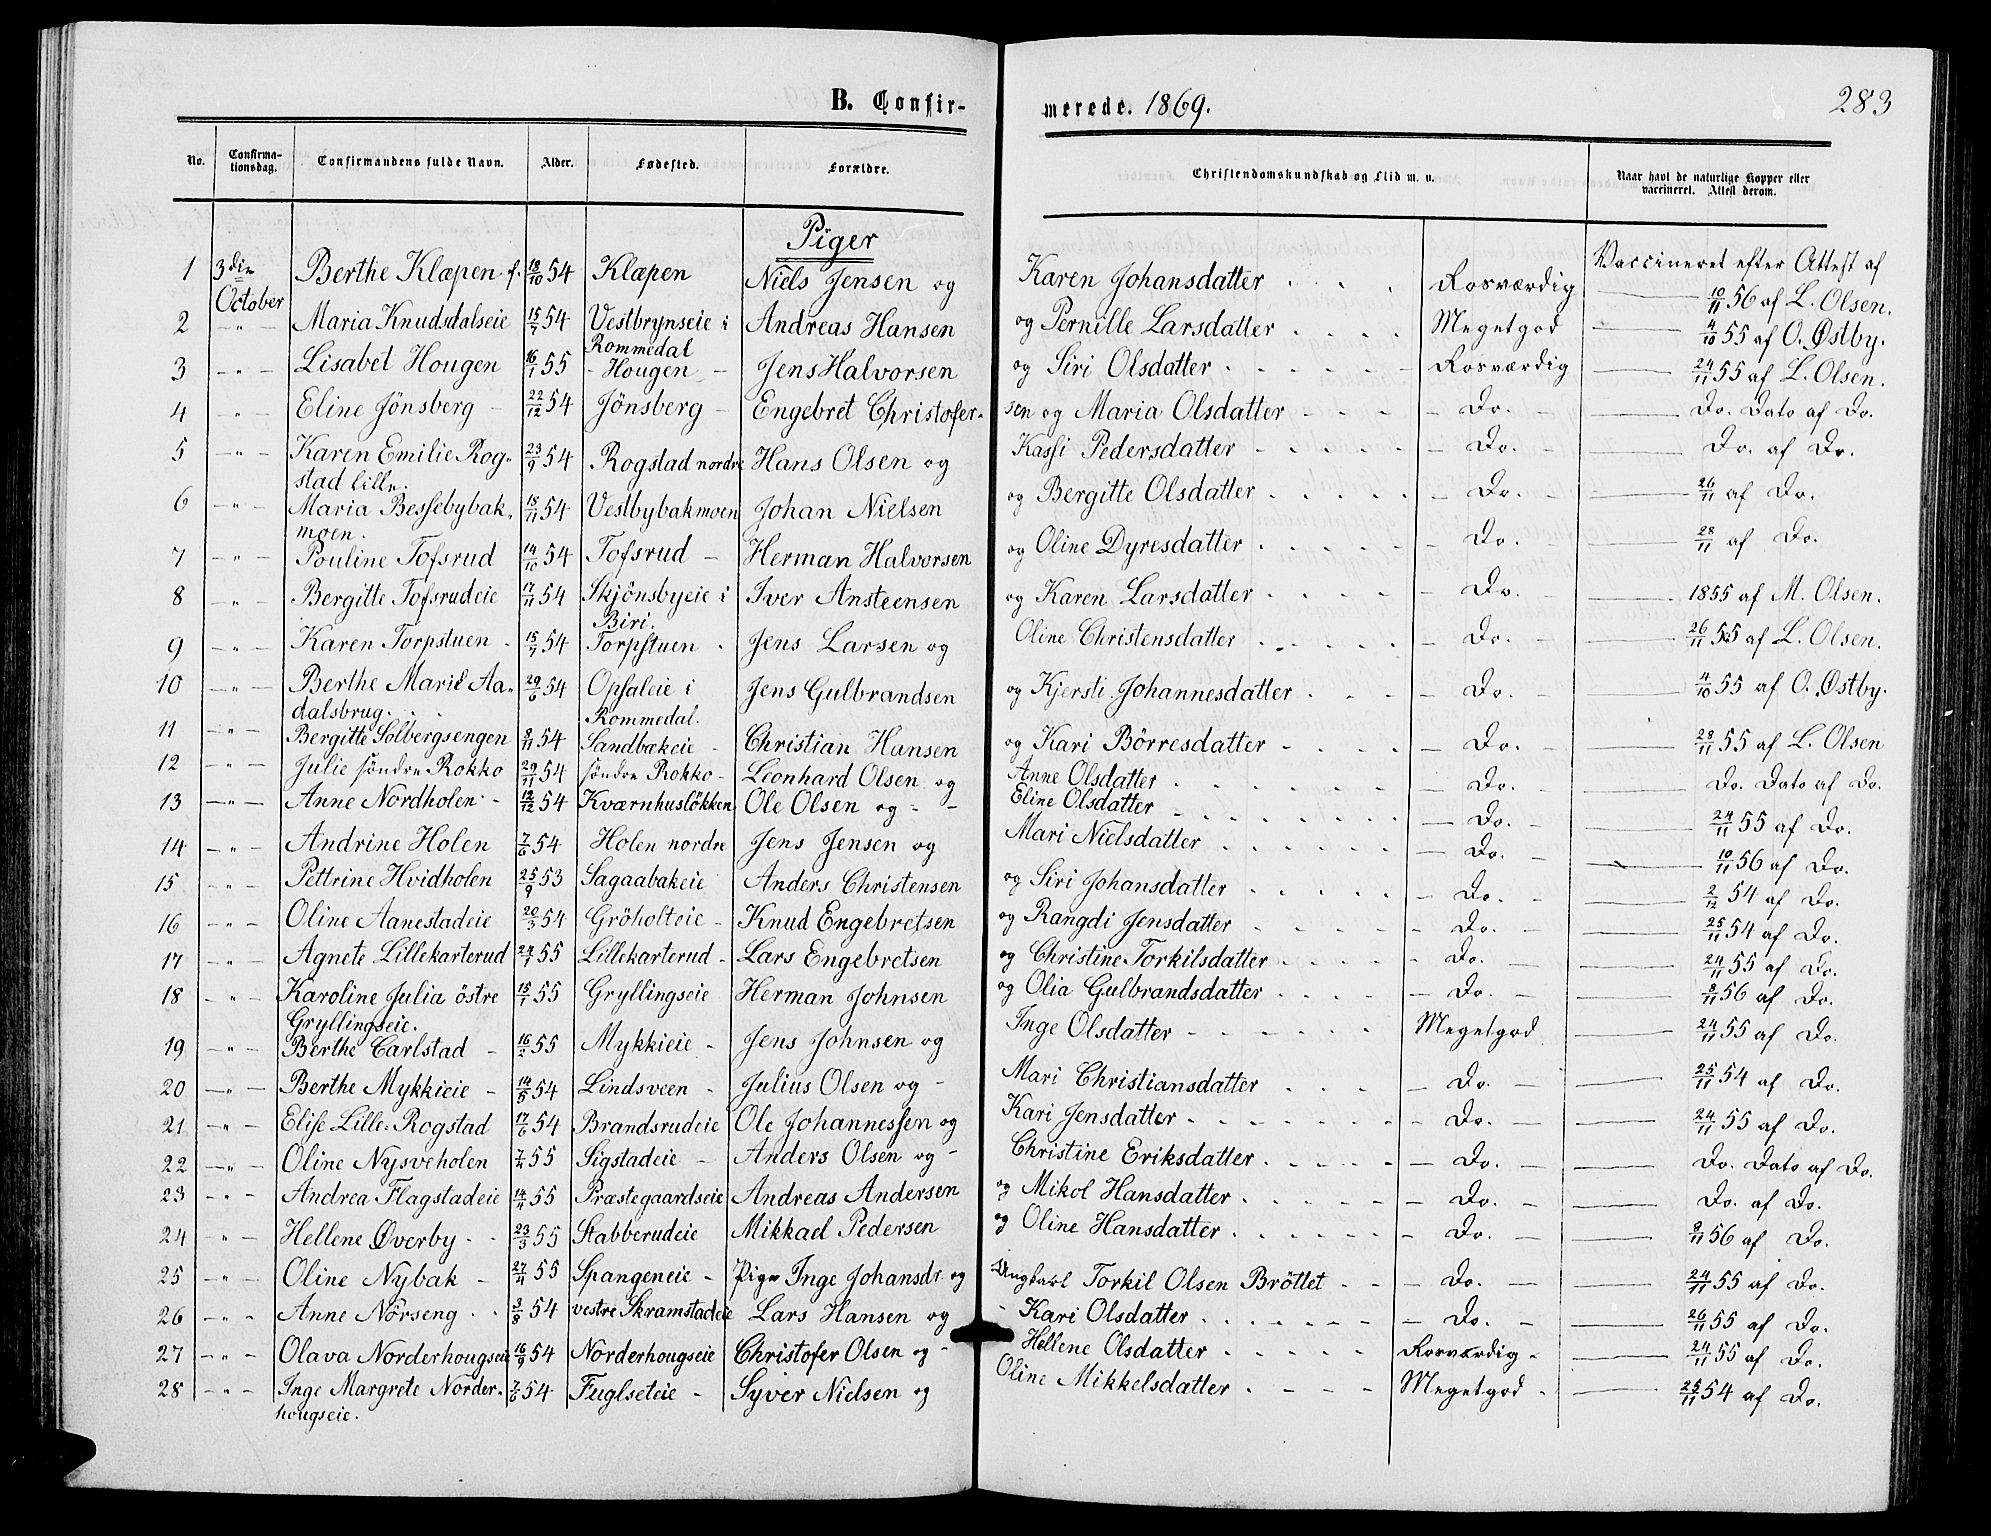 B. Confir- merede. 1869. 283
No. Confirma-tionsdag. Confirmandens fulde Navn. Alder. Fødested. Forældre. Christendomskundskab og Flid m. v. Naar havt de naturlige Kopper eller vaccineret. Attest derom.
Piger
Vaccineret efter Attest af
1 3die October Berthe Klæpen f. 18/10 54 Klæpen Niels Jensen og Karen Johansdatter Rosværdig 10/11 56 af L. Olsen.
2 - " - Maria Knudsdalseie 15/7 54 Vestbrynseie i Rommedal Andreas Hansen og Pernille Larsdatter Megetgod 4/10 55 af O. Østby.
3 - " - Lisabet Hougen 16/1 55 - Hougen - Jens Halvorsen og Siri Olsdatter Rosværdig 24/11 55 af L. Olsen.
4 - " - Eline Jönsberg 22/12 54 Jönsberg - Engebret Christofersen og Maria Olsdatter - Do. - Do. Dato af Do.
5 - " - Karen Emilie Rogstad lille. 23/9 54 Rogstad nordre Hans Olsen og Kassi Pedersdatter - Do. Do. af Do.
6 - " - Maria Bessebybakmoen. 15/11 54 Vestbybakmoen Johan Nielsen og Bergitte Olsdatter - Do. - 26/11 af Do.
7 - " - Pouline Tofsrud 14/10 54 Tofsrud - Herman Halvorsen og Oline Dyresdatter - Do. 28/11 af Do.
8 - " - Bergitte Tofsrudeie 17/11 54 Skjönsbyeie i Biri. Iver Ansteensen og Karen Larsdatter - Do. 1855 af M. Olsen.
9 - " - Karen Torpstuen - 15/7 54 Torpstuen - Jens Larsen og Oline Christensdatter - Do. - 26/11 55 af L. Olsen.
10 - " - Berthe Marie Aadalsbrug. 29/6 54 Opsaleie i Rommedal. Jens Gulbrandsen og Kjersti Johannesdatter - Do. 4/10 55 af O. Østby.
11 - " - Bergitte Solbergsengen 8/11 54 Sandbækeie - Christian Hansen og Kari Börresdatter - Do. - 28/11 55 af L. Olsen
12 - " - Julie söndre Rokko 29/11 54 söndre Rokko - Leonhard Olsen og Anne Olsdatter - Do. - Do. Dato af Do.
13 - " - Anne Nordholen - 12/12 54 Kværnhuslökken Ole Olsen og - - Eline Olsdatter - Do. - 24/11 55 af Do.
14 - " - Andrine Holen 7/6 54 Holen nordre Jens Jensen og Mari Nielsdatter - Do. - 10/11 56 af Do.
15 - " - Pettrine Hvidholen 25/9 53 Sagaabakeie Anders Christensen og Siri Johansdatter - Do. - 2/12 54 af Do.
16 - " - Oline Aanestadeie 20/3 54 Gröholteie - Knud Engebretsen og Rangdi Jensdatter - Do. - 25/11 54 af Do.
17 - " - Agnete Lillekarterud 24/1 55 Lillekarterud - Lars Engebretsen og Christine Torkilsdatter - Do. 24/11 55 af Do.
18 - " - Karoline Julia östre Gryllingseie. 15/1 55 Gryllingseie Herman Johnsen og Olia Gulbrandsdatter - Do. - 8/11 56 af Do.
19 - " - Berthe Carlstad - 16/2 55 Mykkieie - Jens Johnsen og Inge Olsdatter Megetgod 24/11 55 af Do.
20 - " - Berthe Mykkieie - 14/8 54 Lindsveen - Julius Olsen og - Mari Christiansdatter - Do. - 25/11 54 af Do.
21 - " - Elise Lille-Rogstad 17/6 54 Brandsrudeie Ole Johannessen og Kari Jensdatter - Do. - 24/11 55 af Do.
22 - " - Oline Nysveholen 7/4 55 Sigstadeie - Anders Olsen og - Christine Eriksdatter - Do. - Do. Dato af Do.
23 - " - Andrea Flagstadeie 14/4 55 Præstegaardseie Andreas Andersen og Mikol Hansdatter - Do. - Do. af Do.
24 - " - Hellene Øverby - - 23/3 55 Stabberudeie Mikkael Pedersen og Oline Hansdatter - Do. - 8/11 56 af Do.
25 - " - Oline Nybak - 27/4 55 Spangeneie - Pige Inge Johansdr. og Ungkarl Torkil Olsen Bröttet - Do. - 24/11 55 af Do.
26 - " - Anne Nörseng - - 3/8 54 vestre Skramstadeie Lars Hansen og - Kari Olsdatter - Do. - 26/11 55 af Do.
27 - " - Olava Norderhougseie 16/9 54 Norderhougseie Christofer Olsen og - Hellene Olsdatter Rosværdig - 24/11 55 af Do.
28 - " - Inge Margrete Norderhougseie. 7/6 54 Fuglseteie - Syver Nielsen og Oline Mikkelsdatter Megetgod - 25/11 54 af Do.